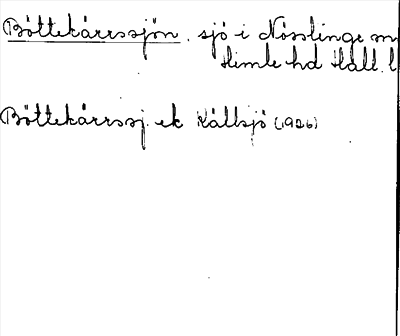 Böttekärrssjön. sjö i Nösslinge sn
Himle hd Hall. l
Böttekärrssj. ek Källsjö (1926)